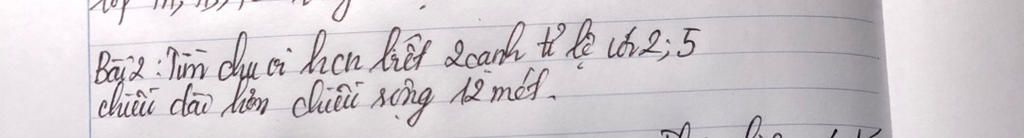 Bài 2: Tìm chu vi hcn biết 2 cạnh tỉ lệ với 2; 5
chiều dài hơn chiều rộng 12 mét.